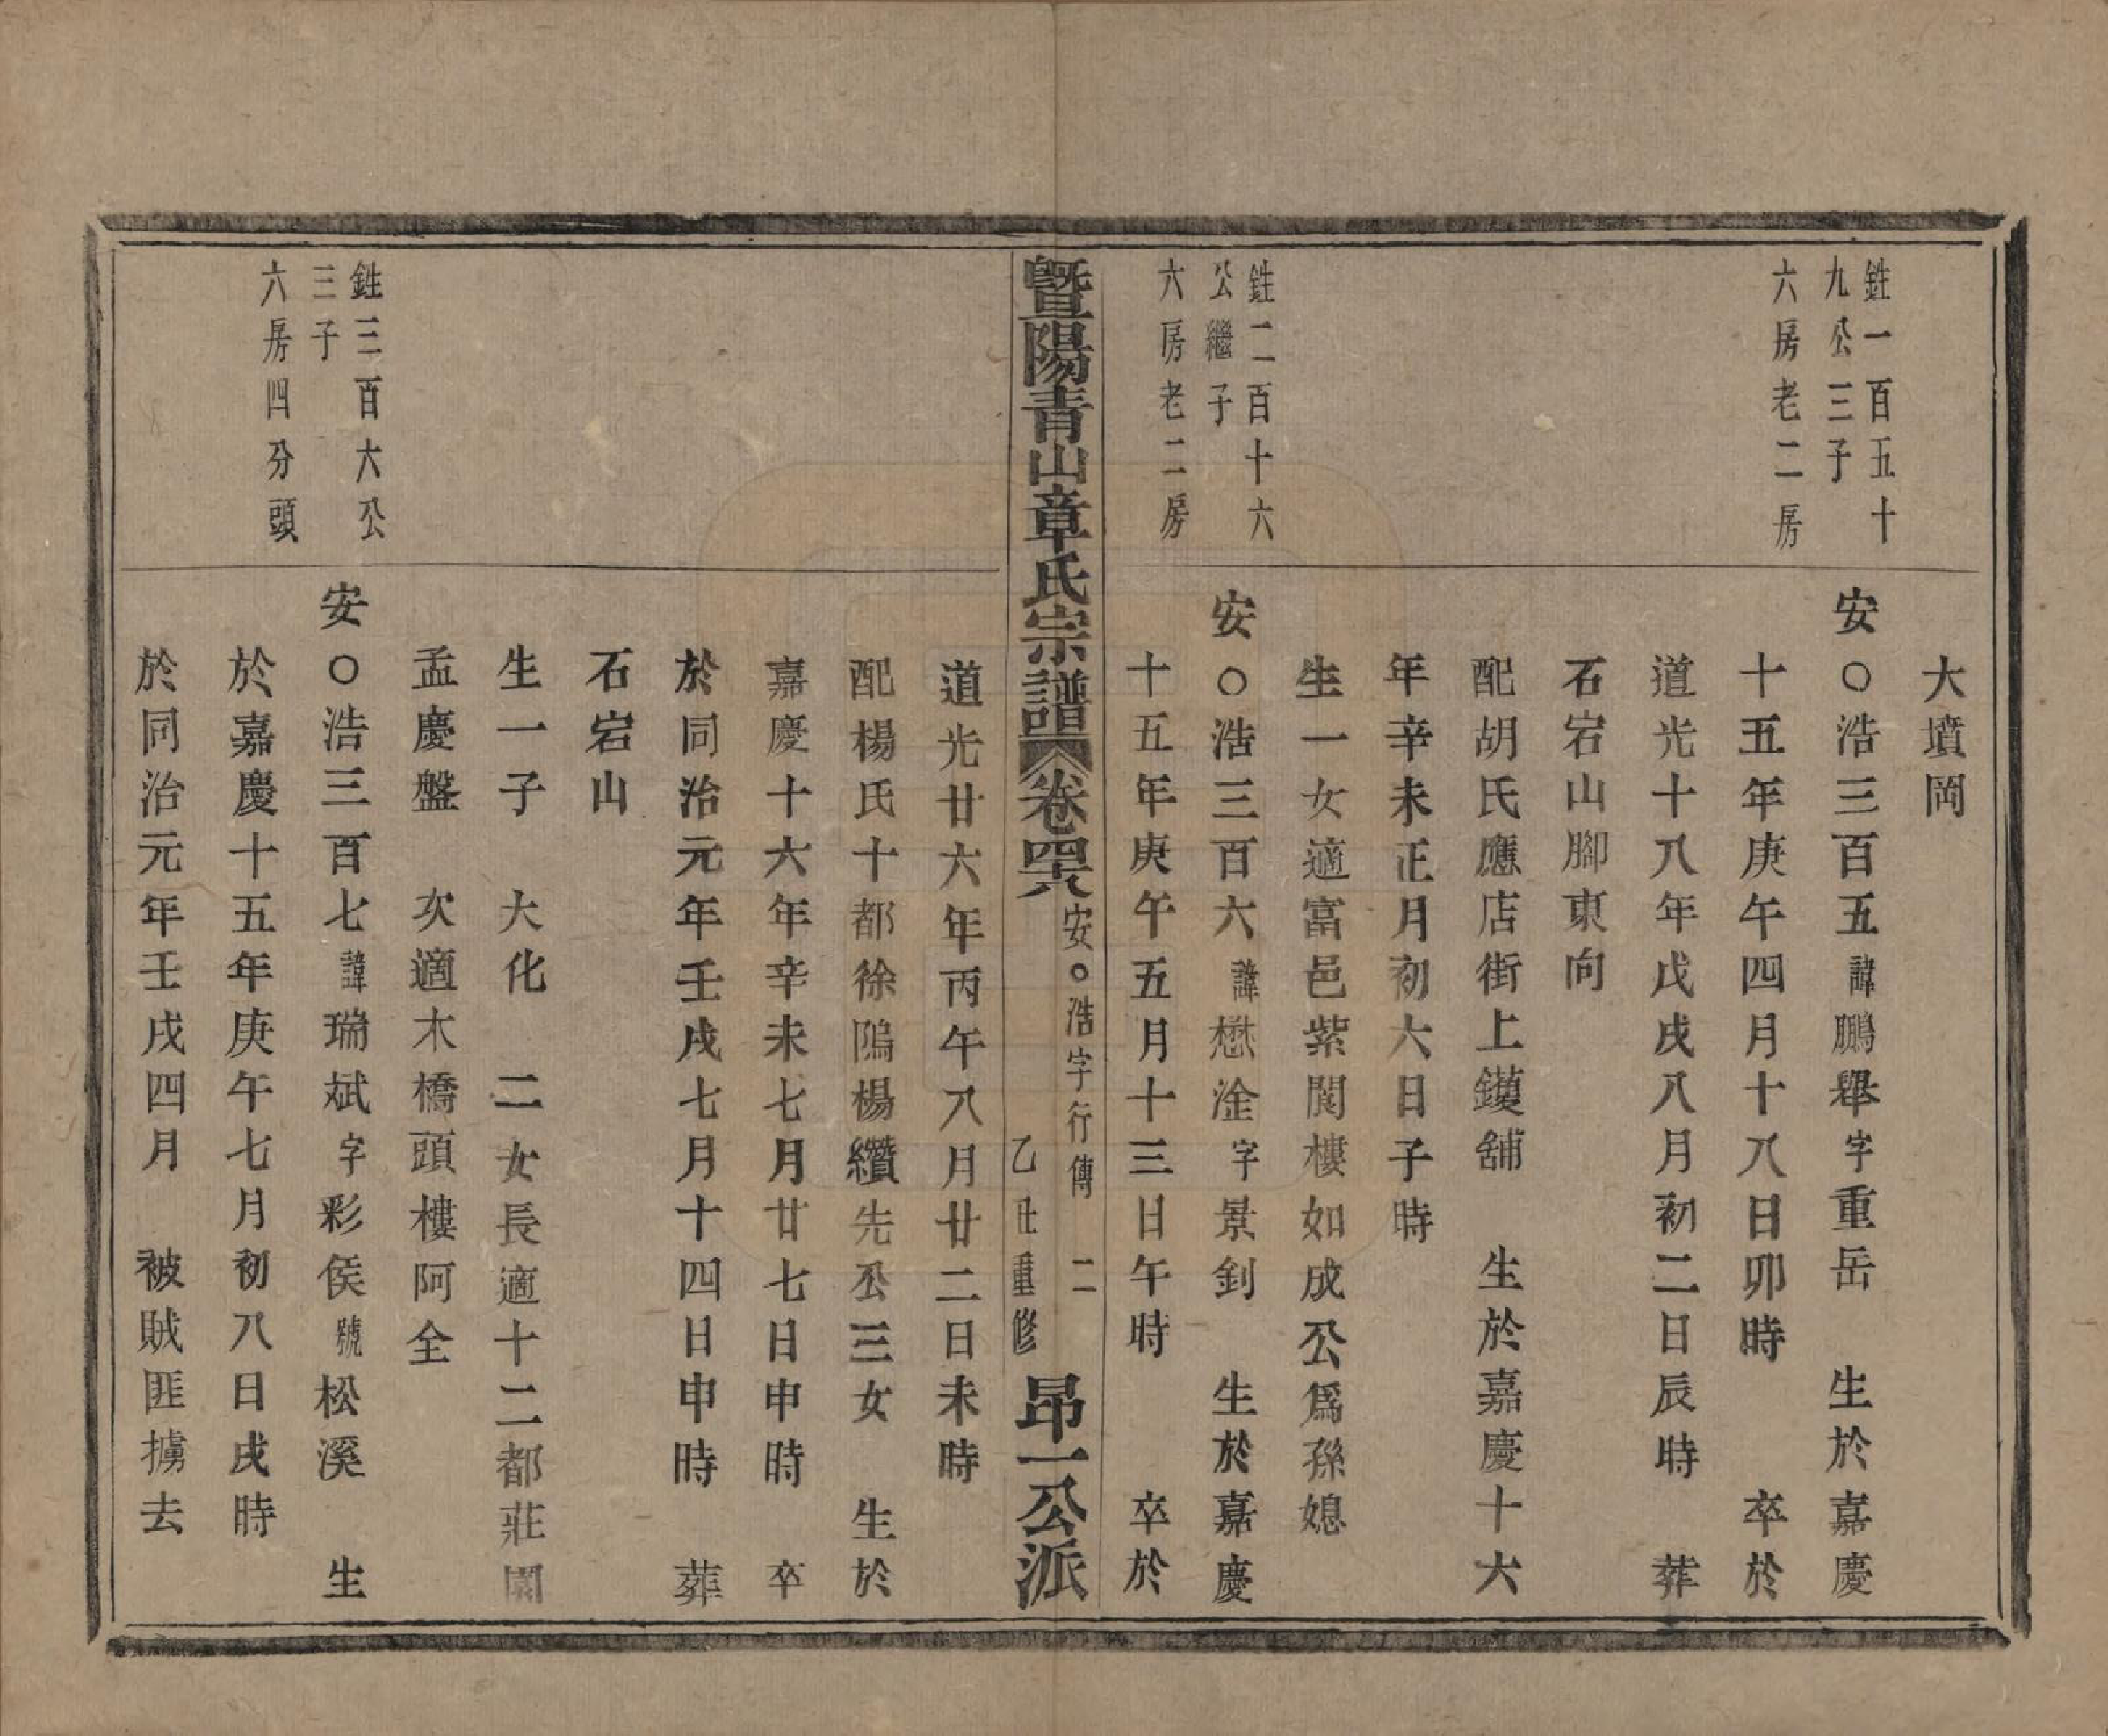 大墳岡
鉎一百五十
九公三子
六房老二房
安○浩三百五諱鵬舉字重岳　生於嘉慶
十五年庚午四月十八日卯時　卒於
道光十八年戊戌八月初二日辰時　葬
石宕山腳東向
配胡氏應店街上鑊舖　生於嘉慶十六
年辛未正月初六日子時
生一女適富邑紫閬樓如成公爲孫媳
鉎二百十六
公繼子
六房老二房
安○浩三百六諱懋淦字景釗　生於嘉慶
十五年庚午五月十三日午時　卒於
暨陽青山章氏宗譜　卷四八　安○浩字行傳　二　乙丑重修　昂一公派
道光廿六年丙午八月廿二日未時
配楊氏十都徐隝楊纘先公三女　生於
嘉慶十六年辛未七月廿七日申時　卒
於同治元年壬戌七月十四日申時　葬
石宕山
生一子　大化　二女長適十二都莊園
孟慶盤　次適木橋頭樓阿全
鉎三百六公
三子
六房四分頭
安○浩三百七諱瑞斌字彩侯號松溪　生
於嘉慶十五年庚午七月初八日戌時
於同治元年壬戌四月　被賊匪擄去